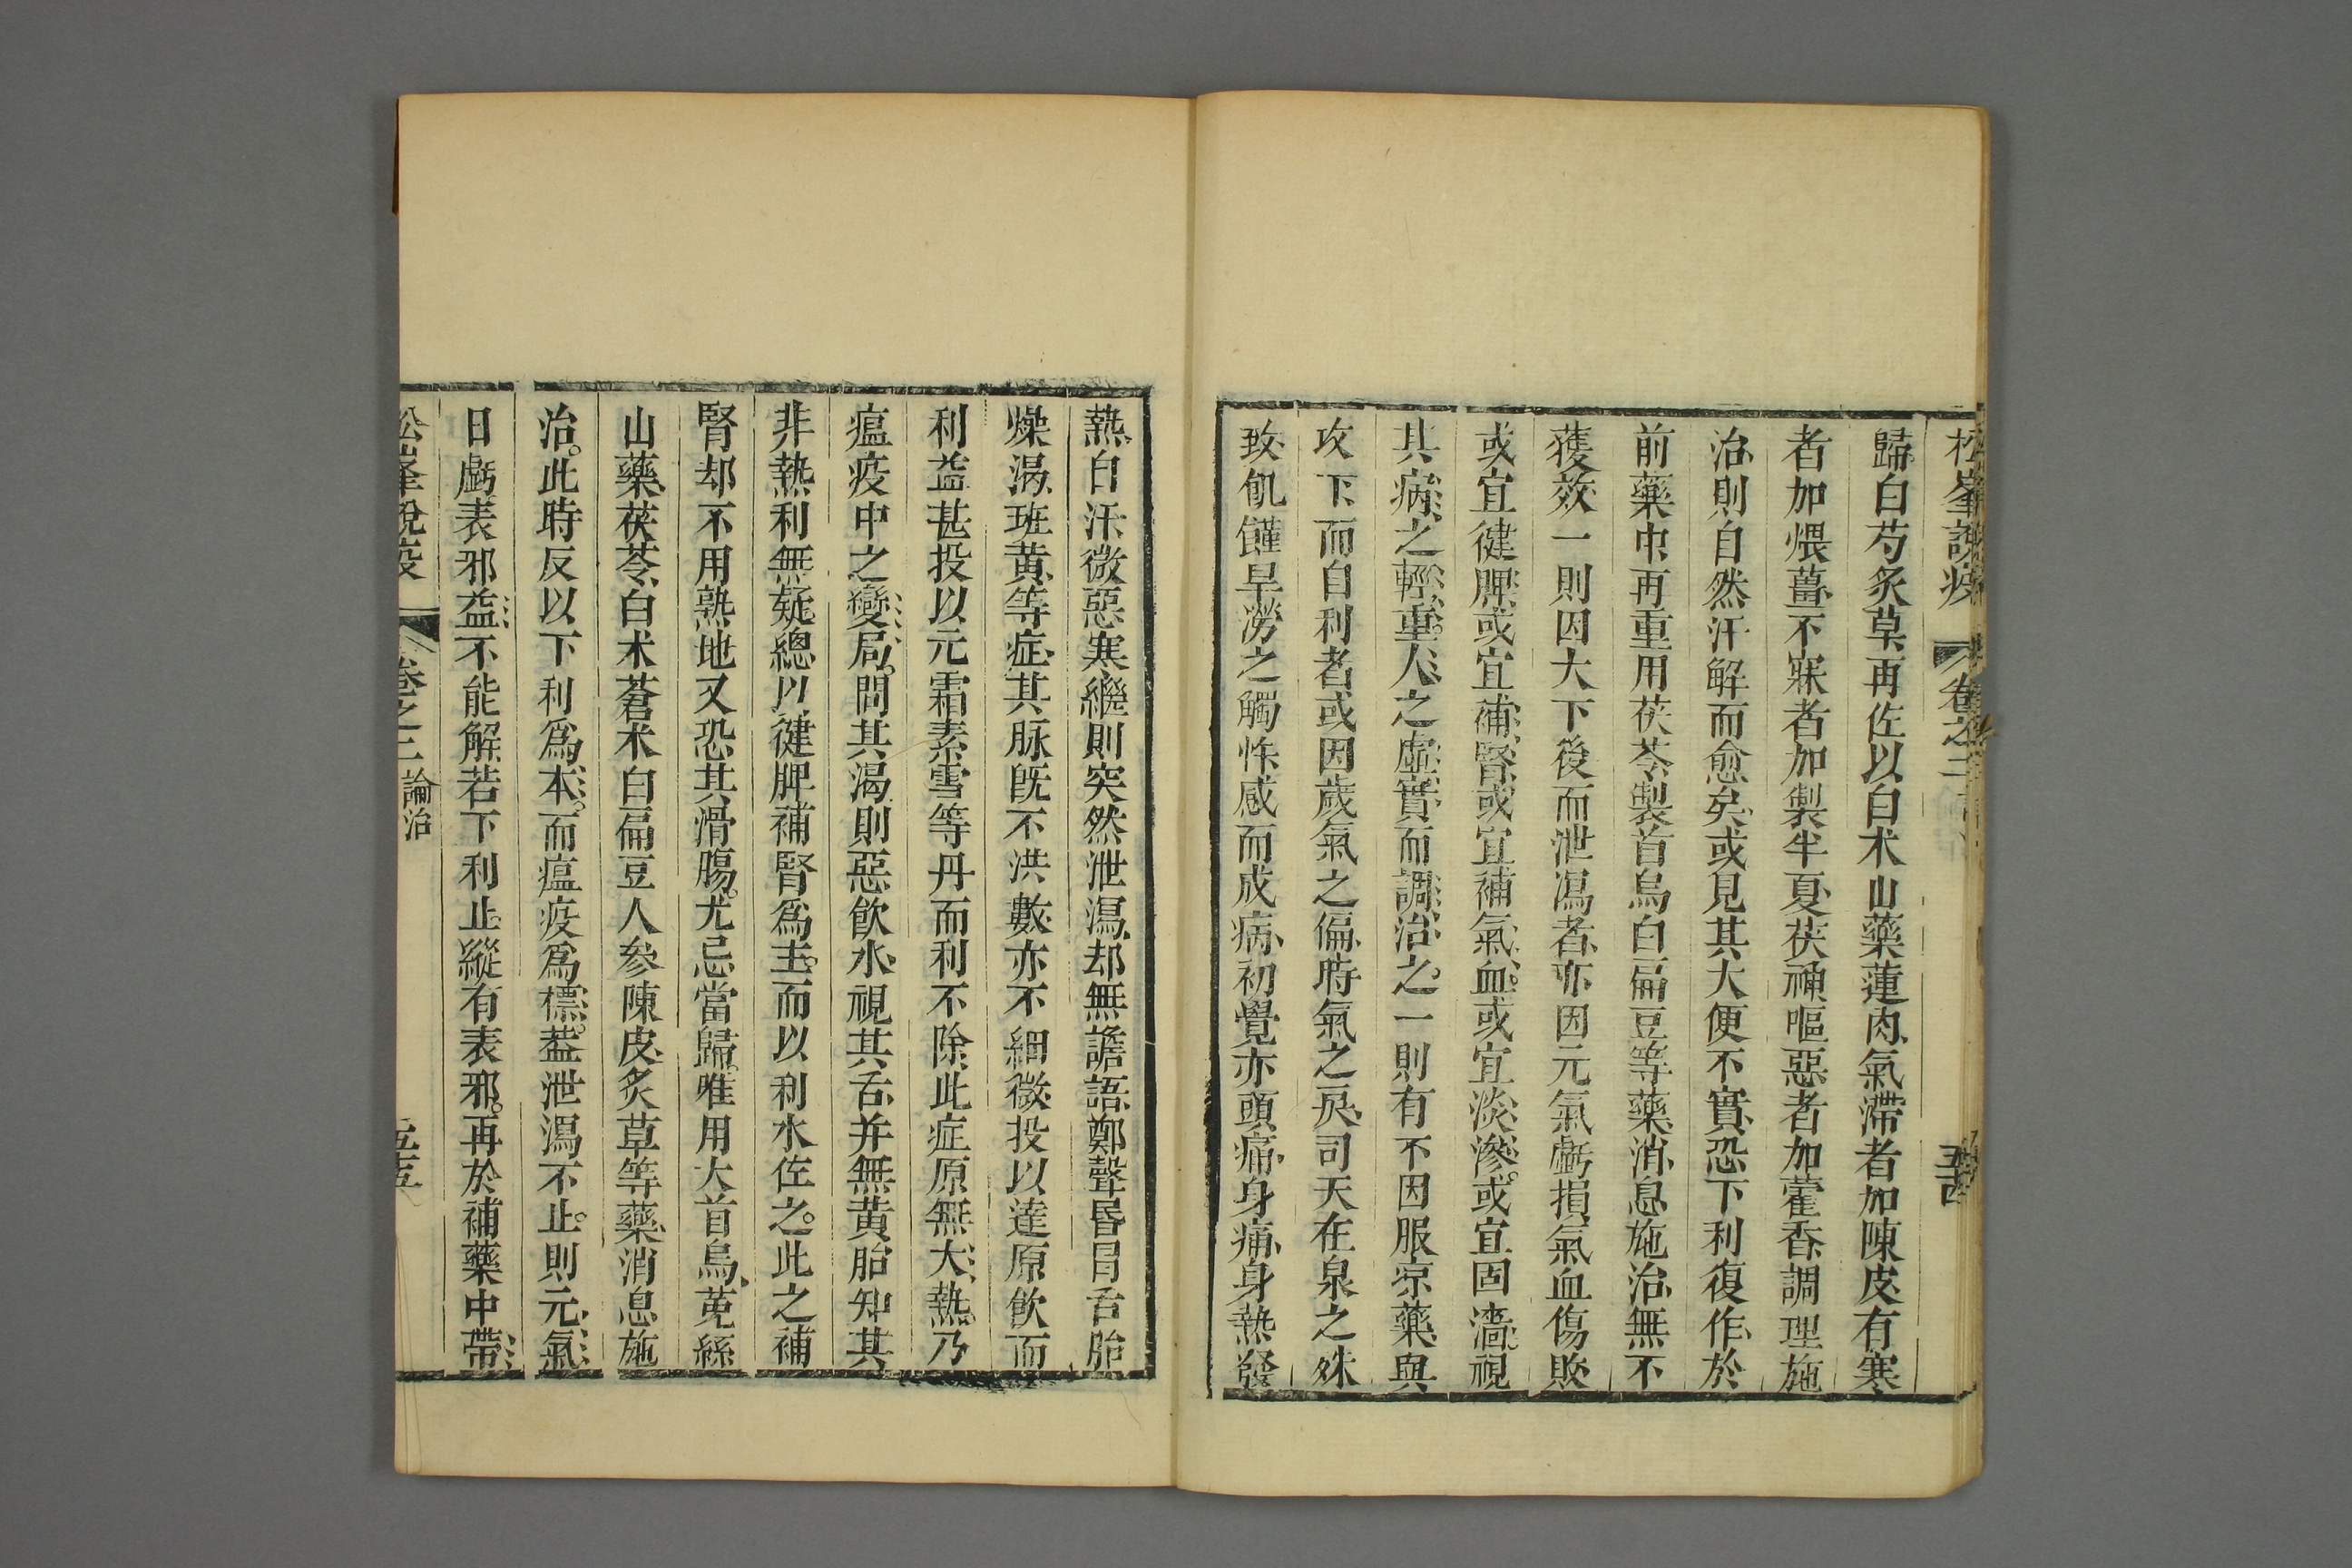 松峯說疫 卷之二 五十四
歸、白芍、炙草、再佐以白朮山藥蓮肉、氣滯者加陳皮、有寒
者加煨薑、不寐者加製半夏、茯神、嘔惡者加藿香、調理施
治、則自然汗解而愈矣、或見其大便不實、恐下利復作、於
前藥中、再重用茯苓、製首烏、白扁豆等藥、消息施治、無不
獲效、一則因大下後而泄瀉者、亦因元氣虧損、氣血傷敗、
或宜健脾、或宜補腎、或宜補氣血。或宜淡滲。或宜固濇。視
其病之輕重。人之虛實而調治之。一則有不因服凉藥與
攻下、而自利者、或因歲氣之偏、時氣之戾、司天在泉之殊、
致飢饉旱澇之觸忤感而成病、初覺亦頭痛、身痛、身熱發
熱、自汗、微惡寒、繼則突然泄瀉、却無譫語、鄭聲、昏冒、舌胎
燥渴、班黃等症、其脉旣不洪數、亦不細微、投以達原飲而
利益甚、投以元霜素雪等丹而利不除、此症原無大熱、乃
瘟疫中之變局。問其渴、則惡飲水、視其舌、并無黃胎、知其
非熱利無疑。總以健脾補腎爲主。而以利水佐之。此之補
腎却不用熟地、又恐其滑腸。尤忌當歸。唯用大首烏、莵絲
山藥、茯苓、白朮、蒼朮、白扁豆、人參、陳皮、炙草等藥、消息施
治。此時反以下利爲本。而瘟疫爲標。葢泄瀉不止。則元氣
日虧、表邪益不能解、若下利止、縱有表邪。再於補藥中帶
松峯說疫 卷之二 論治 五十五